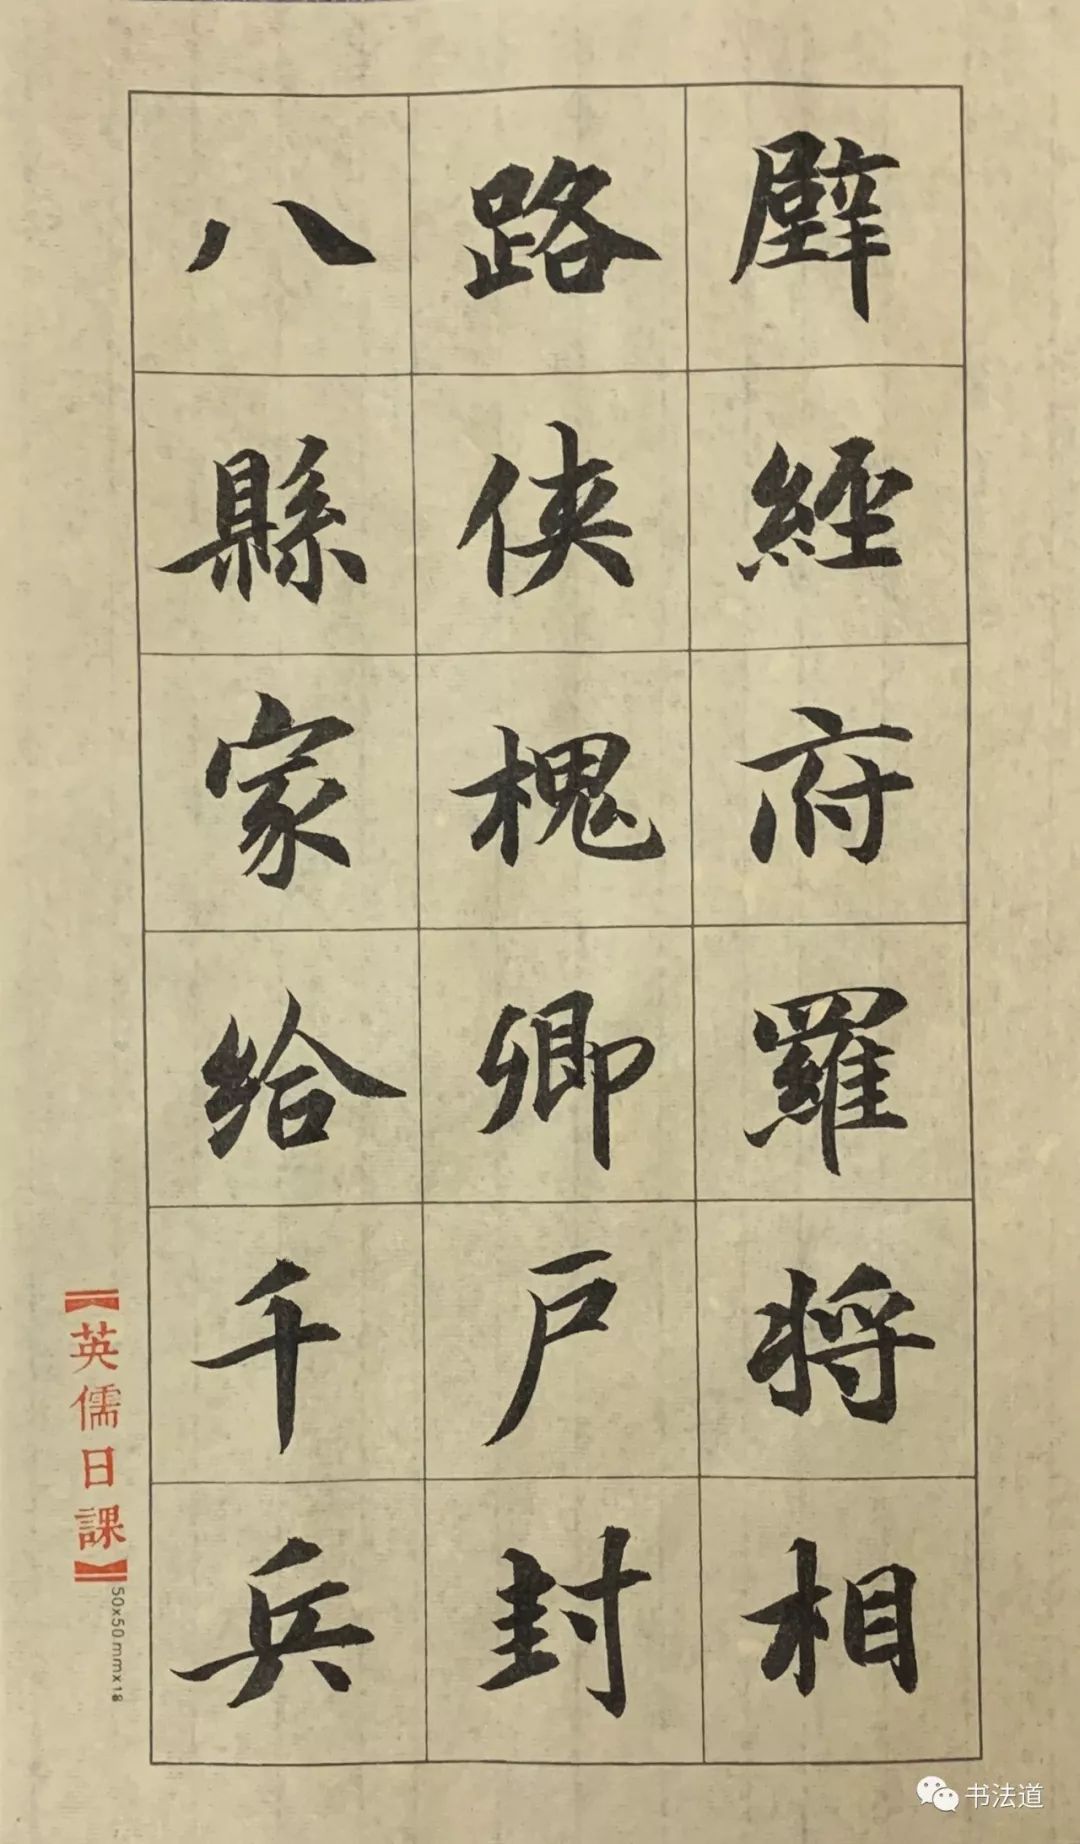 壁經府羅將相
路俠槐卿户封
八縣家給千兵
【英儒日課】
50x50mmx18
书法道